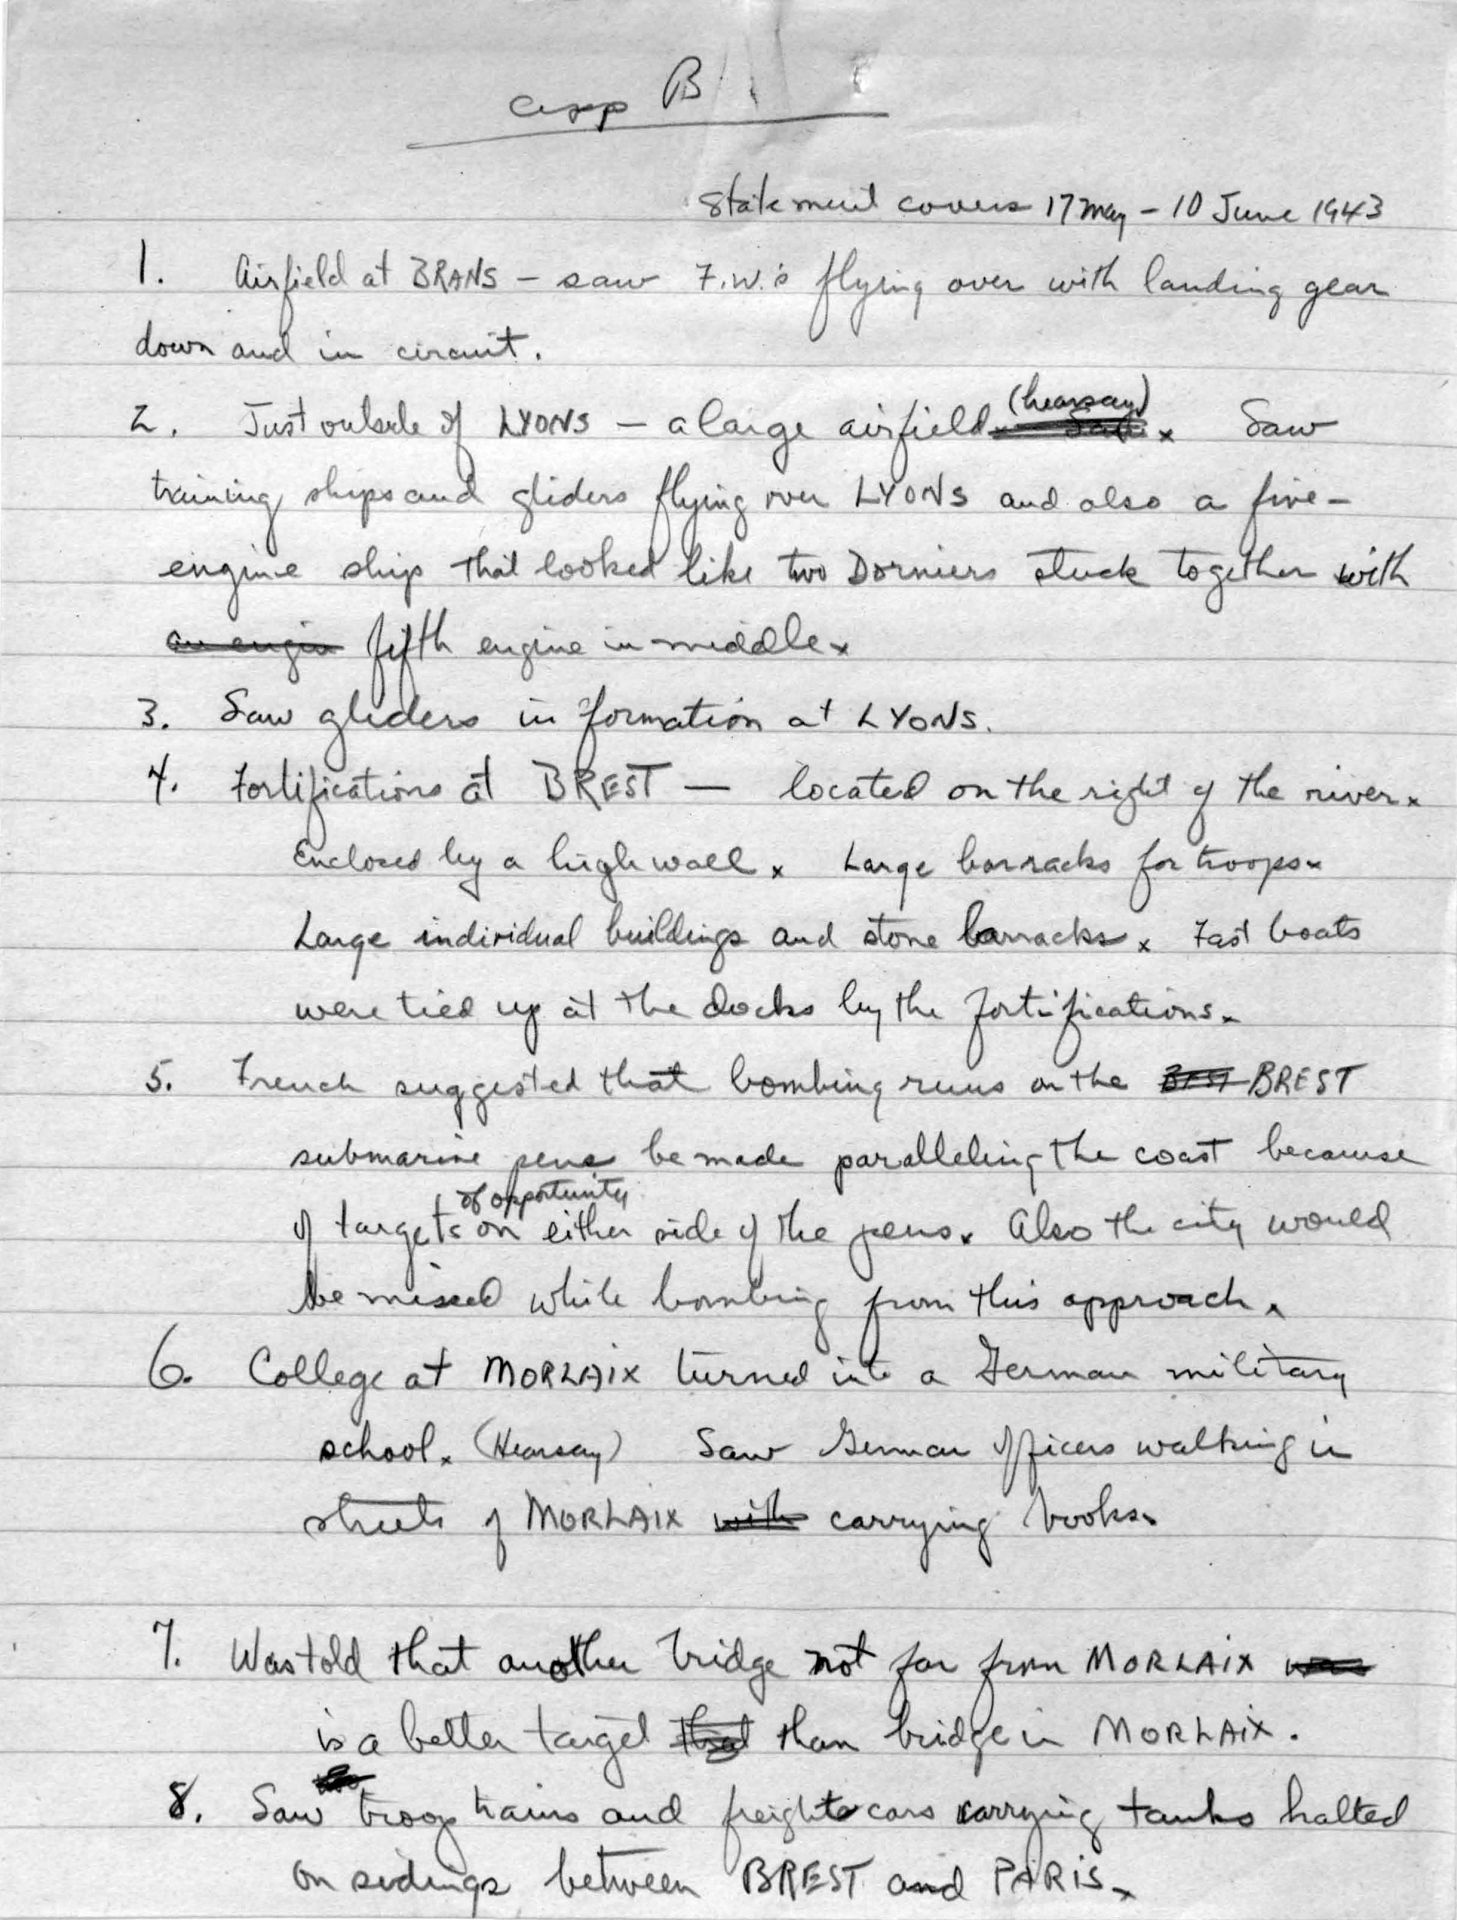 app B
Statement covers 17 May - 10 June 1943
1. Airfield at BRANS - saw F.W.'s flying over with landing gear
down and in circuit.
2. Just outside of LYONS - a large airfield (hearsay) x Saw
training ships and gliders flying over LYONS and also a five-
engine ship that looked like two Dorniers stuck together with
an engin fifth engine in middle x
3. Saw gliders in formation at LYONS.
4. Fortifications at BREST - located on the right of the river x
Enclosed by a high wall x Large barracks for troops x
Large individual buildings and stone barracks x Fast boats
were tied up at the docks by the fortifications x
5. French suggested that bombing runs on the BEST BREST
submarine pens be made paralleling the coast because
of targets of opportunity on either side of the pens x Also the city would
be missed while bombing from this approach x
6. College at MORLAIX turned into a German military
school x (Hearsay) Saw German officers walking in
streets of MORLAIX with carrying books x
7. Was told that another bridge not far from MORLAIX was
is a better target that than bridge in MORLAIX.
8. Saw troop trains and freight cars carrying tanks halted
on sidings between BREST and PARIS x